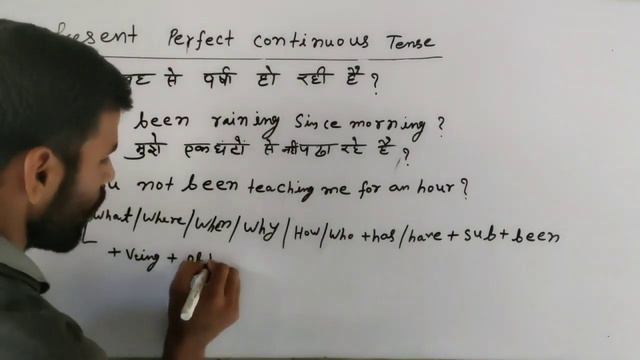 Present Perfect Continuous Tense
से वर्षा हो रही है ?
been raining since morning ?
मुझे एक घंटों से नहीं पढ़ा रहे हैं ?
not been teaching me for an hour ?
What/Where/When/Why/How/Who + has/have + sub + been
+ Ving +